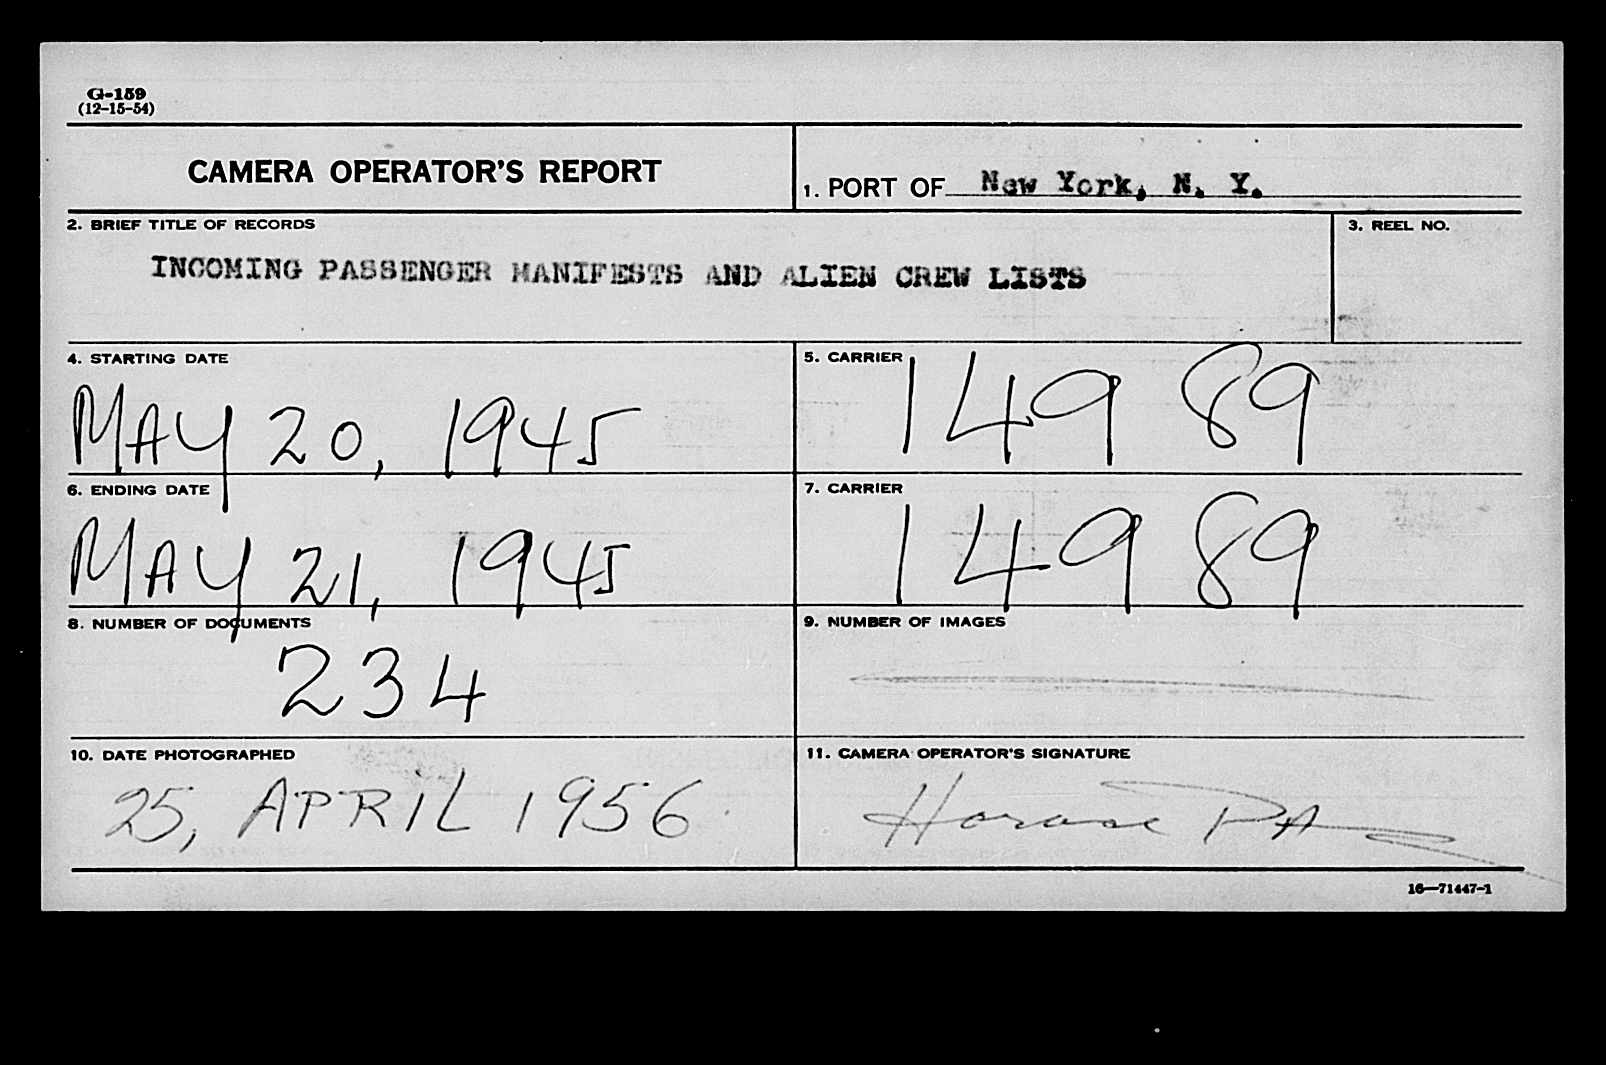 G-159
(12-15-54)
CAMERA OPERATOR'S REPORT
1. PORT OF New York, N. Y.
2. BRIEF TITLE OF RECORDS
3. REEL NO.
INCOMING PASSENGER MANIFESTS AND ALIEN CREW LISTS
4. STARTING DATE
5. CARRIER
MAY 20, 1945
149 89
6. ENDING DATE
7. CARRIER
MAY 21, 1945
149 89
8. NUMBER OF DOCUMENTS
9. NUMBER OF IMAGES
234
10. DATE PHOTOGRAPHED
11. CAMERA OPERATOR'S SIGNATURE
25, APRIL 1956
Horace
16—71447-1